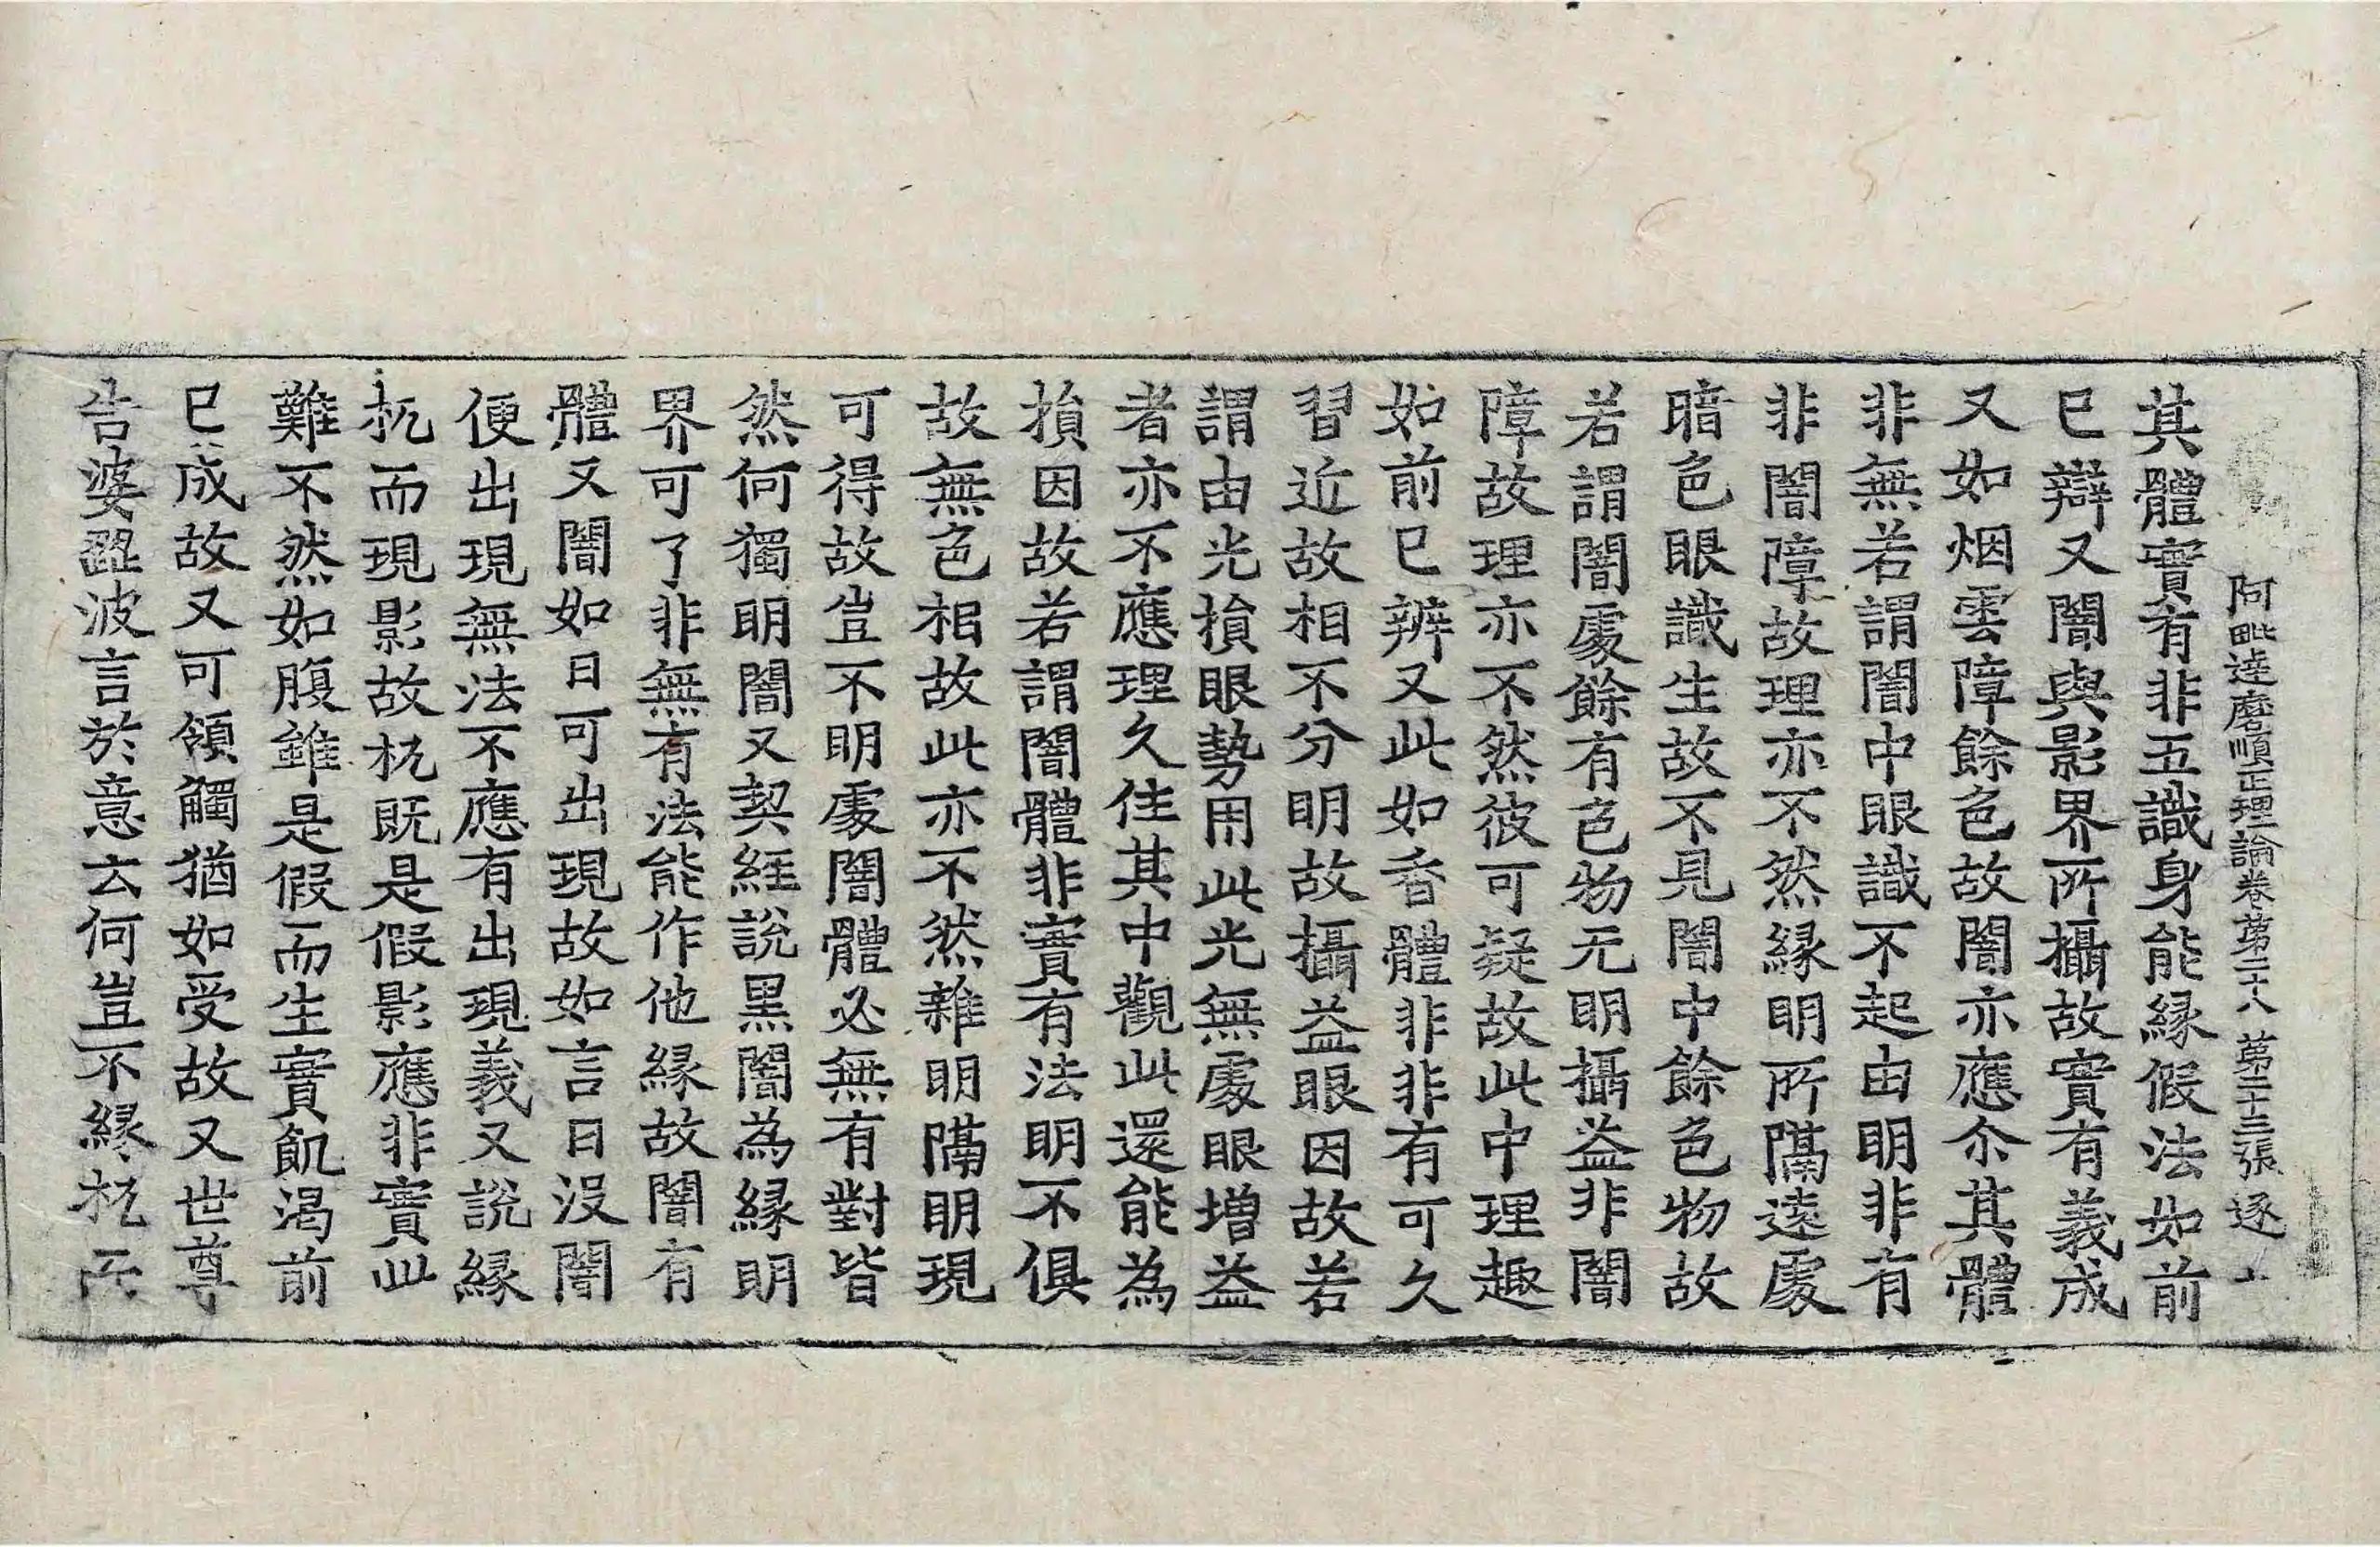 阿毗達磨順正理論卷第二十八 第二十三張 逐
其體實有非五識身能緣假法如前
已辯又闇與影界所攝故實有義成
又如烟雲障餘色故闇亦應尒其體
非無若謂闇中眼識不起由明非有
非闇障故理亦不然緣明所隔遠處
暗色眼識生故不見闇中餘色物故
若謂闇處餘有色物无明攝益非闇
障故理亦不然彼可疑故此中理趣
如前已辨又此如香體非非有可久
習近故相不分明故攝益眼因故若
謂由光損眼勢用此光無處眼增益
者亦不應理久住其中觀此還能為
損因故若謂闇體非實有法明不俱
故無色相故此亦不然雜明隔明現
可得故豈不明處闇體必無有對皆
然何獨明闇又契經說黑闇為緣明
界可了非無有法能作他緣故闇有
體又闇如日可出現故如言日沒闇
便出現無法不應有出現義又說緣
杌而現影故杌既是假影應非實此
難不然如腹雖是假而生實飢渴前
已成故又可領觸猶如受故又世尊
告婆澀波言於意云何豈不緣杌而